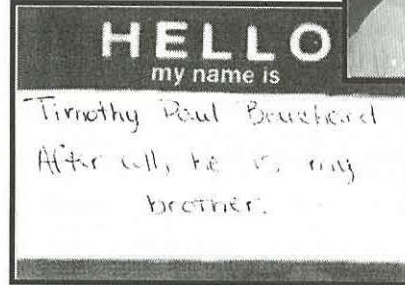 HELLO
my name is
Timothy Paul Bouchard
After all, he is my
brother.